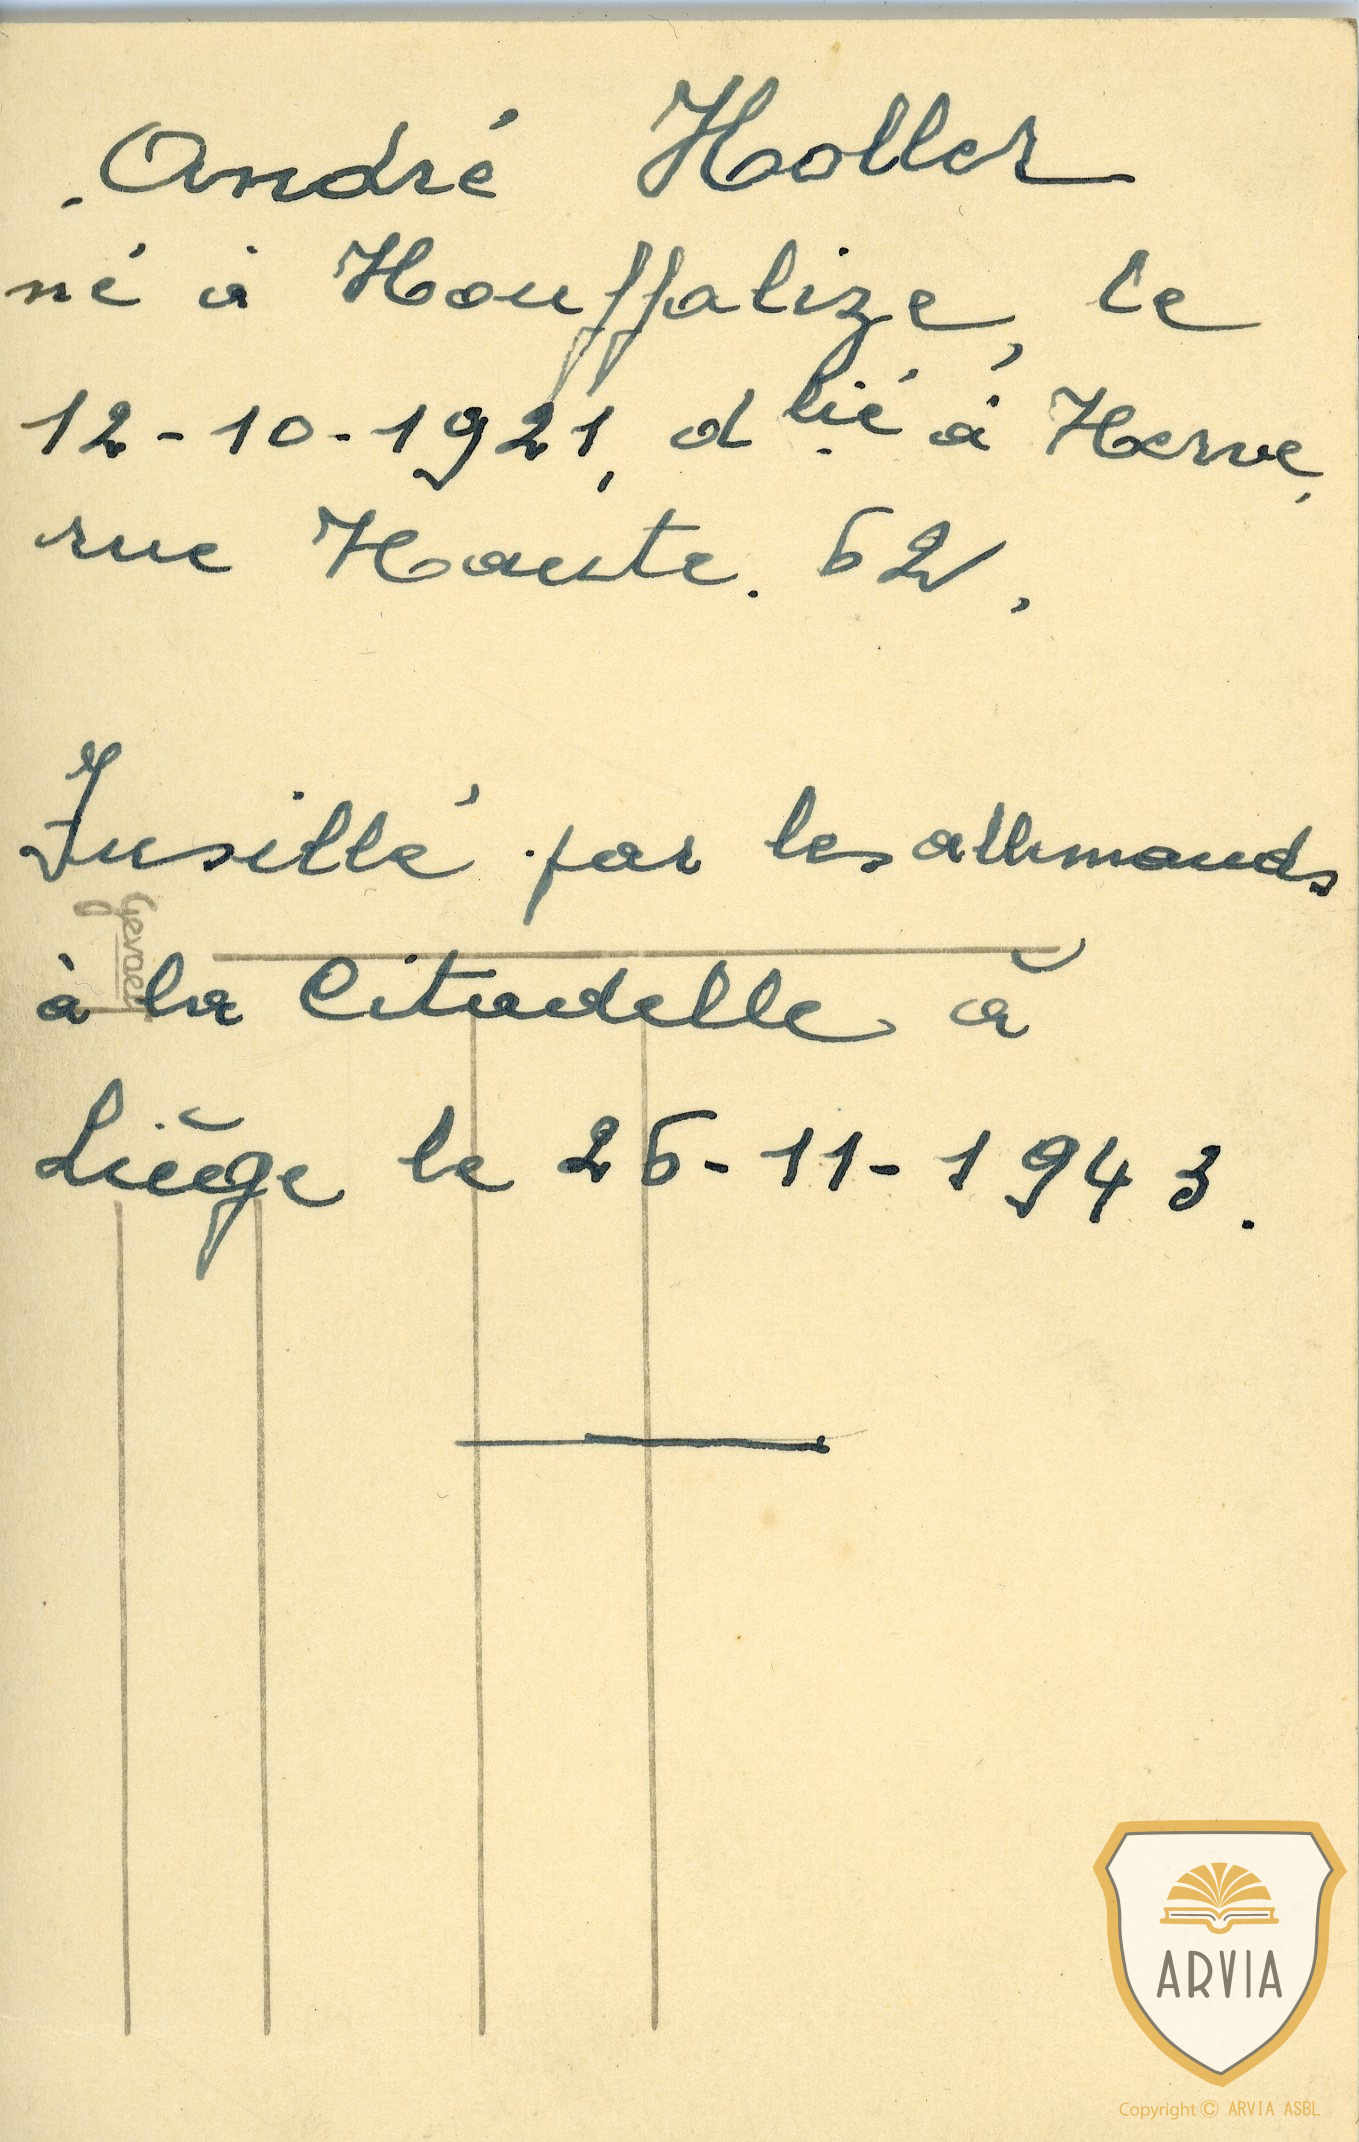 André Holler
né à Houffalize, le
12-10-1921, d.lié à Herve,
rue Haute. 62,
Fusillé par les allemands
à la Citadelle à
Liège le 26-11-1943.
Gevaert
ARVIA
Copyright © ARVIA ASBL